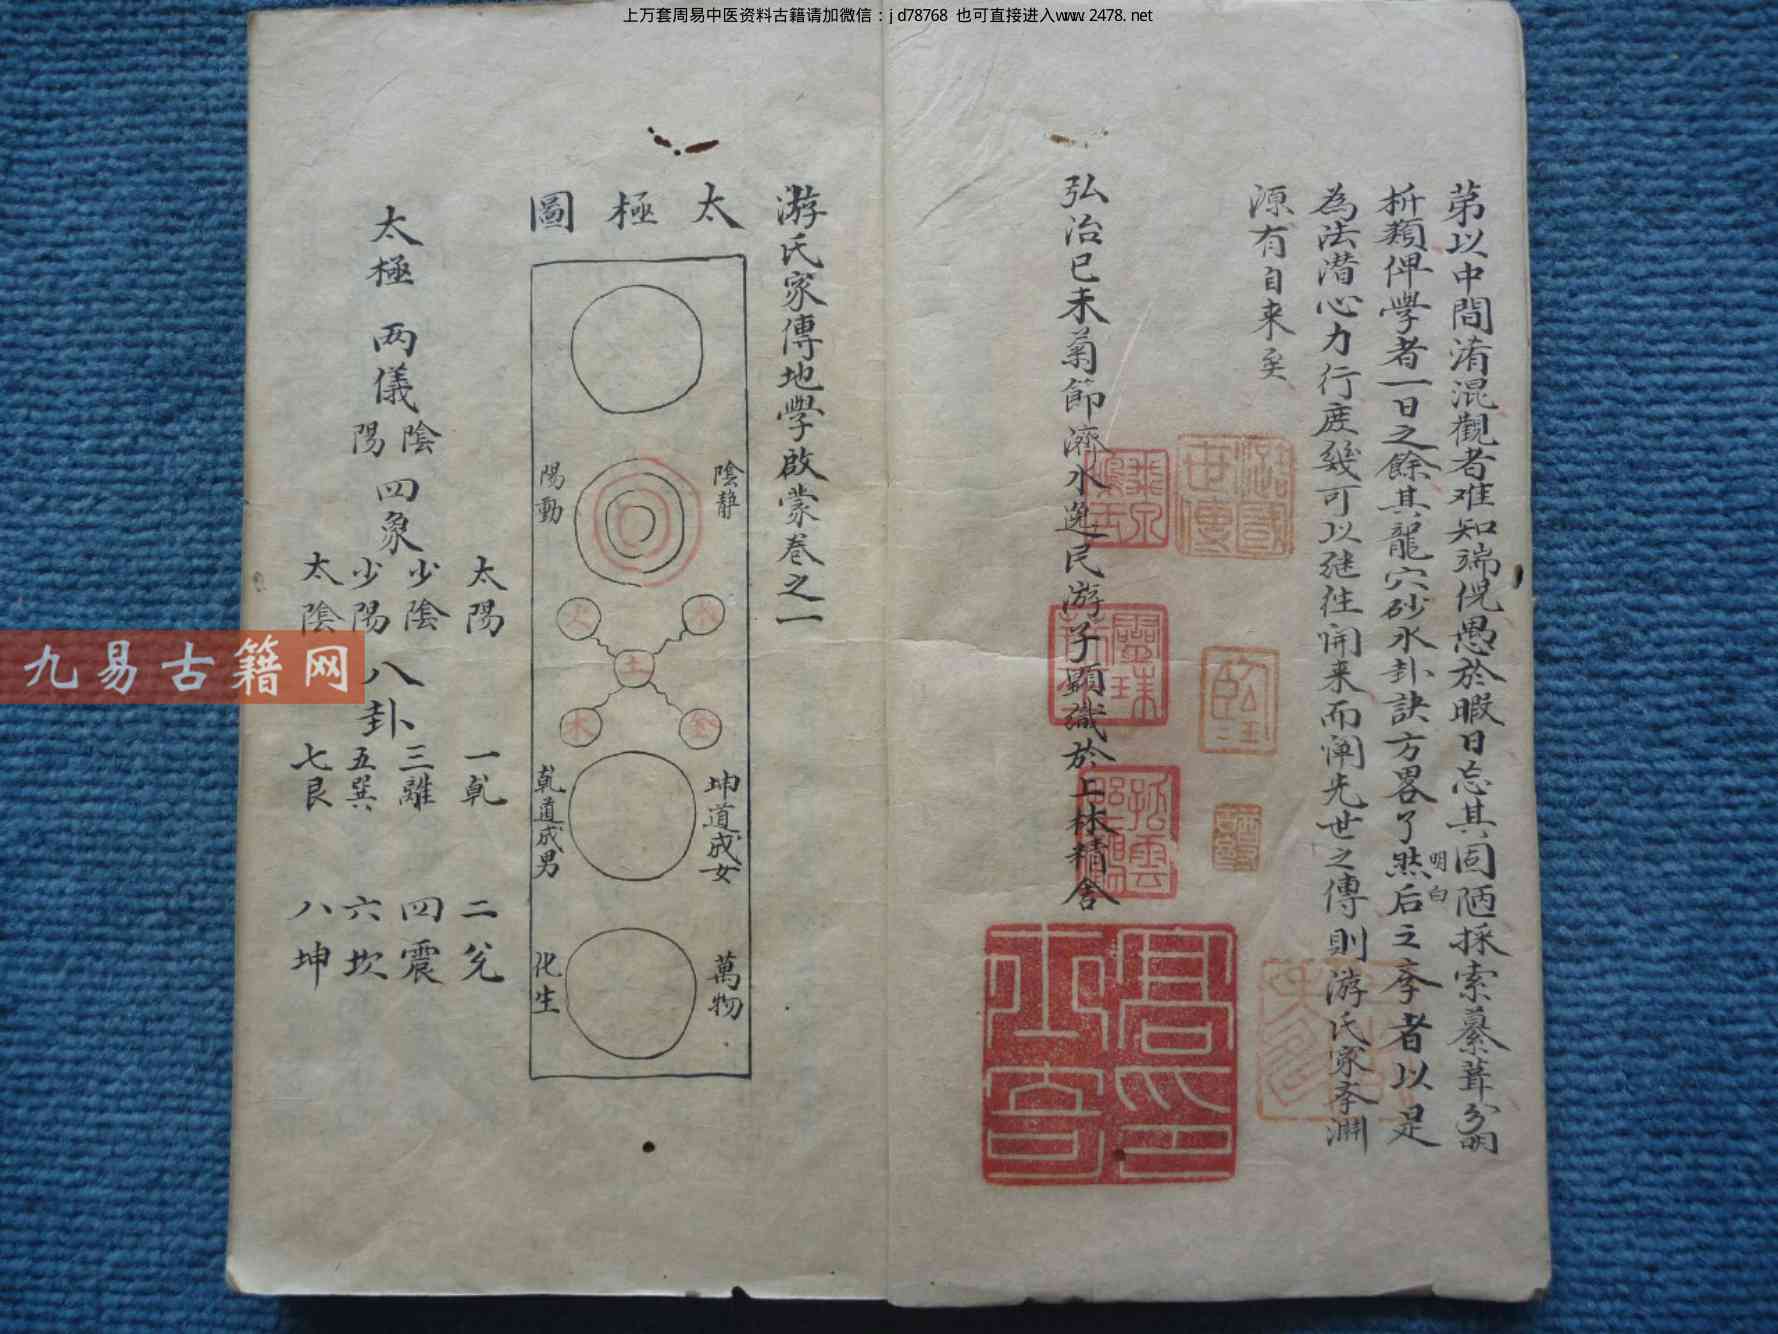 上万套周易中医资料古籍请加微信：jd78768 也可直接进入www.2478.net
苐以中間淆混觀者难知端倪愚於暇日忘其固陋採索纂葺分明
析類俾學者一日之餘其龍穴砂水卦訣方畧了然后之斈者以是
明白
為法潜心力行庶幾可以継往開来而闡先世之傳則游氏家斈淵
源有自来矣
弘治已未菊節濟水逸民游子顕識於上林精舍
游氏家傳地學啟蒙卷之一
太極圖
陰静
陽動
火
水
土
木
金
坤道成女
乾道成男
萬物
化生
太極 两儀 陰陽 四象 太陽 少陰 少陽 太陰 八卦
一乾 二兊
三離 四震
五巽 六坎
七艮 八坤
九易古籍网